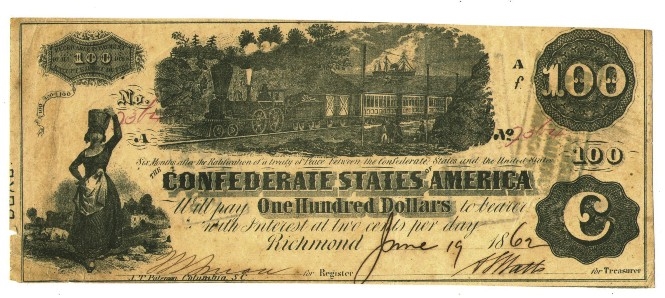 100
A
f
100
No.
No
A
Six Months after the Ratification of a treaty of Peace between the Confederate States and the United States
100
THE CONFEDERATE STATES OF AMERICA
Will pay One Hundred Dollars to bearer
with Interest at two cents per day
C
Richmond June 19 1862
for Register
for Treasurer
J.T. Paterson, Columbia, S.C.